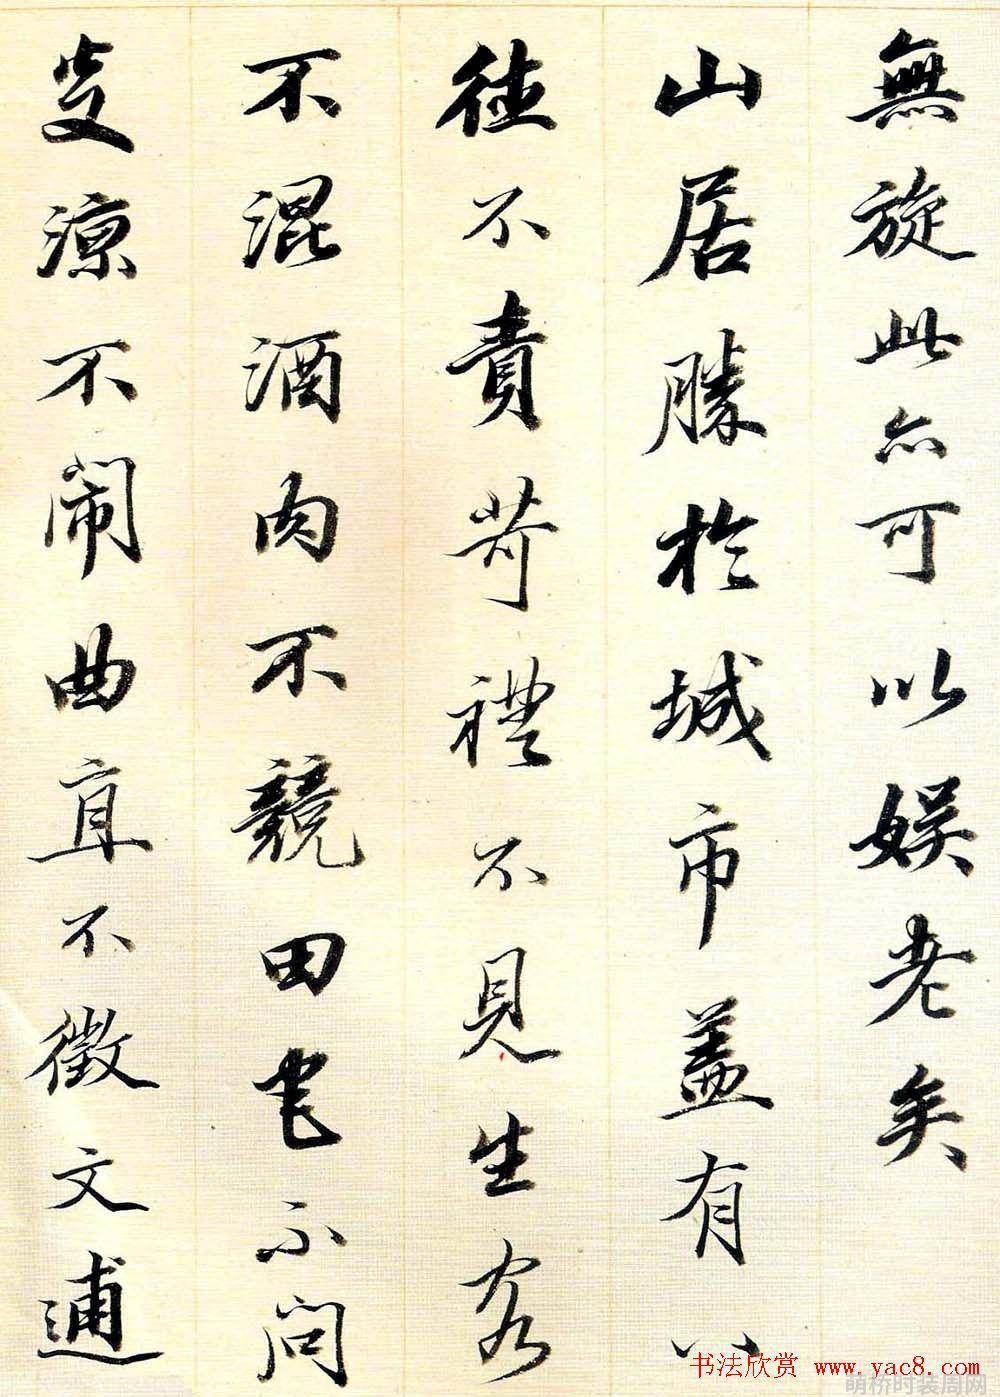 無旋此亦可以娱老矣
山居勝於城市盖有八
德不責苛禮不見生客
不混酒肉不競田宅不問
炎涼不闹曲直不徵文逋
书法欣赏 www.yac8.com
萌桥时装周网